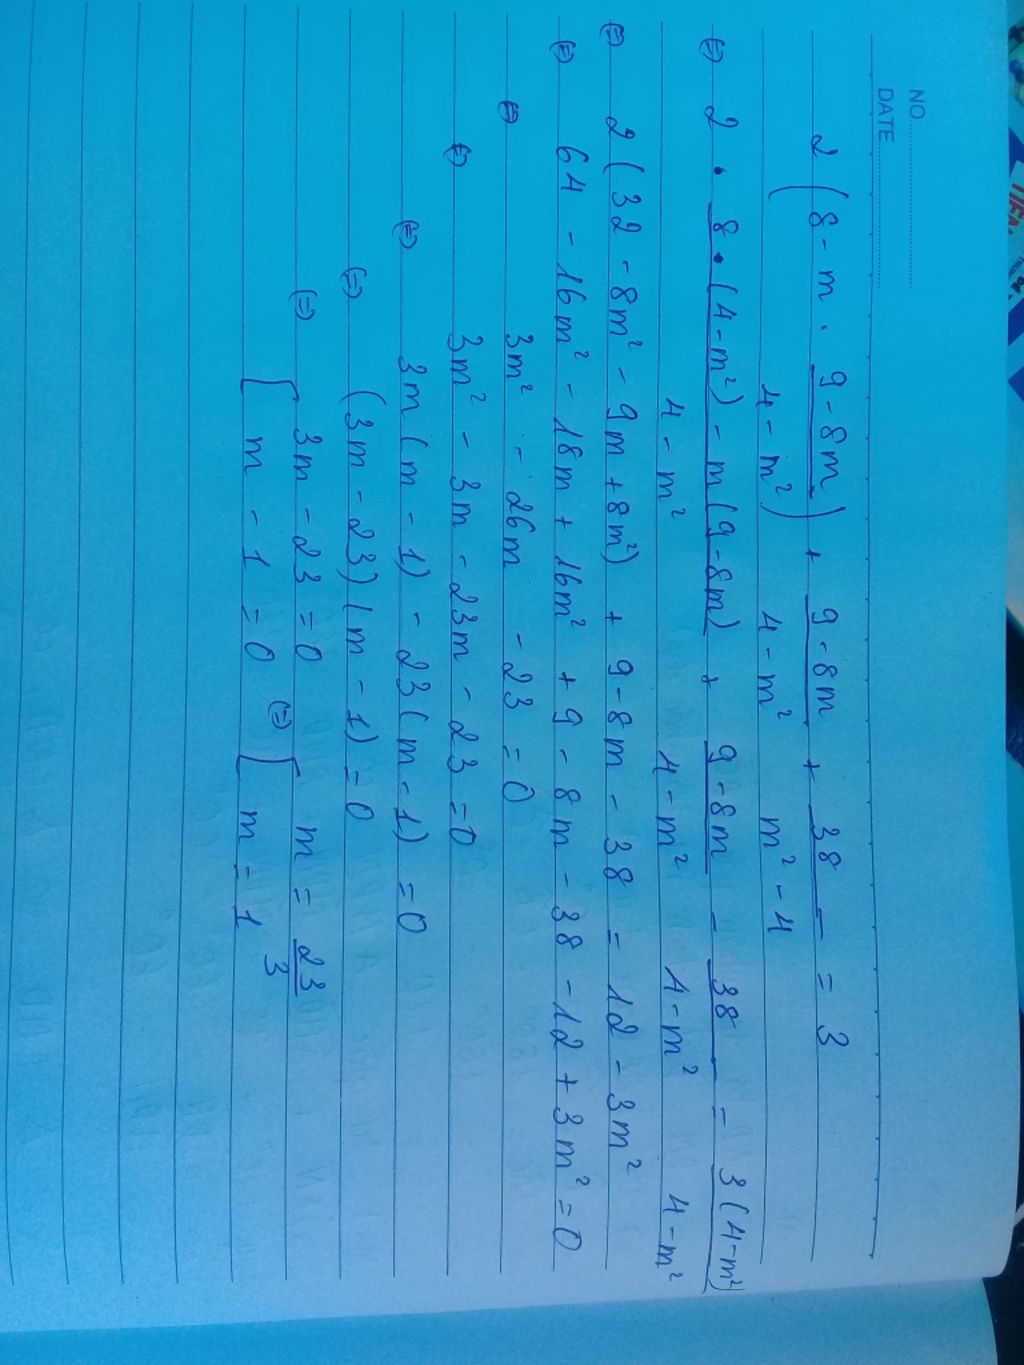 NO.
DATE
2(8 - m . (9 - 8m)/(4 - m²)) + (9 - 8m)/(4 - m²) + 38/(m² - 4) = 3
(=) 2 . (8 . (4 - m²) - m(9 - 8m))/(4 - m²) + (9 - 8m)/(4 - m²) - 38/(4 - m²) = 3(4 - m²)/(4 - m²)
(=) 2(32 - 8m² - 9m + 8m²) + 9 - 8m - 38 = 12 - 3m²
(=) 64 - 16m² - 18m + 16m² + 9 - 8m - 38 - 12 + 3m² = 0
(=) 3m² - 26m - 23 = 0
(=) 3m² - 3m - 23m - 23 = 0
(=) 3m(m - 1) - 23(m - 1) = 0
(=) (3m - 23)(m - 1) = 0
(=) [ 3m - 23 = 0 (=) [ m = 23/3
m - 1 = 0 m = 1